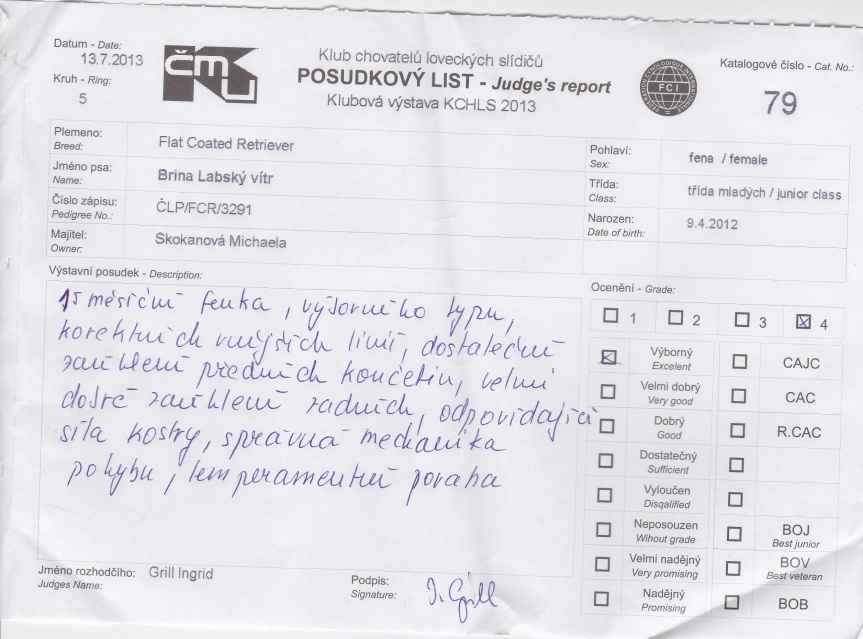 Datum - Date:
13.7.2013
Kruh - Ring:
5
ČMKU
Klub chovatelů loveckých slídičů
POSUDKOVÝ LIST - Judge's report
Klubová výstava KCHLS 2013
FCI
Katalogové číslo - Cat. No.:
79
Plemeno:
Breed:
Flat Coated Retriever
Jméno psa:
Name:
Brina Labský vítr
Číslo zápisu:
Pedigree No.:
ČLP/FCR/3291
Majitel:
Owner:
Skokanová Michaela
Pohlaví:
Sex:
fena / female
Třída:
Class:
třída mladých / junior class
Narozen:
Date of birth:
9.4.2012
Výstavní posudek - Description:
15 měsíční fenka, výborného typu,
korektních vnějších linií, dostateční
zaúhlení předních končetin, velmi
dobré zaúhlení zadních, odpovídající
síla kostry, správná mechanika
pohybu, temperamentní povaha
Ocenění - Grade:
1 2 3 4
Výborný
Excelent
CAJC
Velmi dobrý
Very good
CAC
Dobrý
Good
R.CAC
Dostatečný
Sufficient
Vyloučen
Disqalified
Neposouzen
Wihout grade
BOJ
Best junior
Velmi nadějný
Very promising
BOV
Best veteran
Nadějný
Promising
BOB
Jméno rozhodčího:
Judges Name:
Grill Ingrid
Podpis:
Signature:
I. Grill